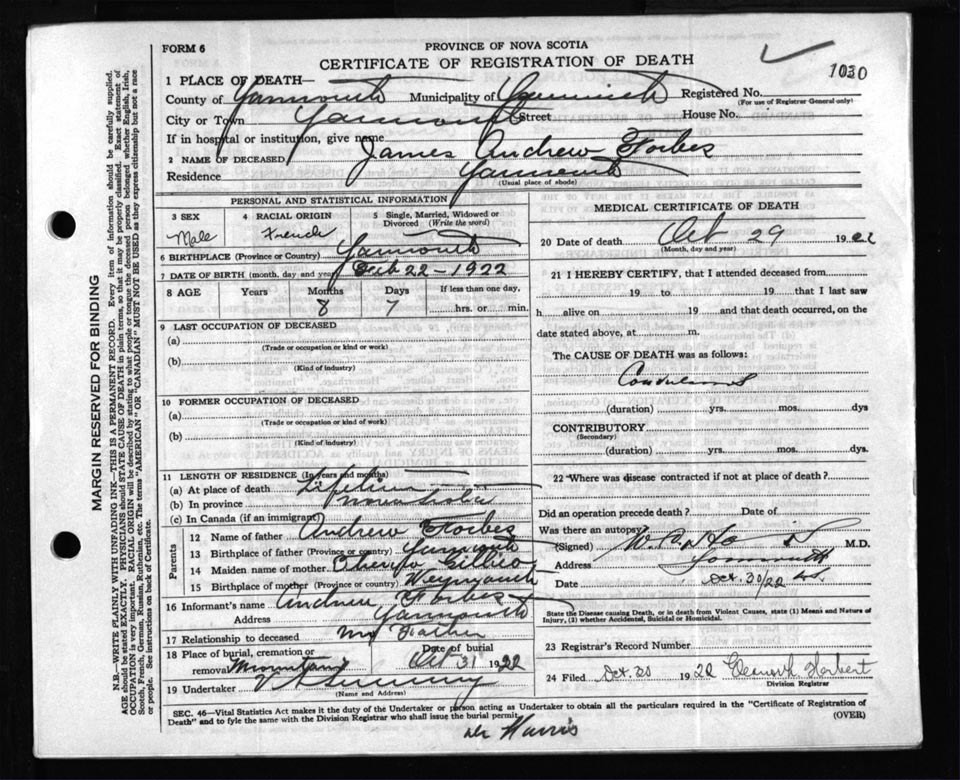 FORM 6
PROVINCE OF NOVA SCOTIA
CERTIFICATE OF REGISTRATION OF DEATH
1030
MARGIN RESERVED FOR BINDING
N.B.—WRITE PLAINLY, WITH UNFADING INK—THIS IS A PERMANENT RECORD. Every item of information should be carefully supplied.
AGE should be stated EXACTLY. PHYSICIANS should STATE CAUSE OF DEATH in plain terms, so that it may be properly classified. Exact statement of
OCCUPATION is very important. RACIAL ORIGIN will be described by stating to what people or tongue the deceased person belonged whether English, Irish,
Scotch, French, German, Russian, Ruthenian, etc. The terms "AMERICAN" OR "CANADIAN" MUST NOT BE USED as they express citizenship but not a race
or people. See instructions on back of Certificate.
1 PLACE OF DEATH—
County of Yarmouth Municipality of Yarmouth Registered No.
(For use of Registrar General only)
City or Town Yarmouth Street House No.
If in hospital or institution, give name
2 NAME OF DECEASED James Andrew Forbes
Residence Yarmouth
(Usual place of abode)
PERSONAL AND STATISTICAL INFORMATION
3 SEX Male
4 RACIAL ORIGIN French
5 Single, Married, Widowed or Divorced (Write the word)
6 BIRTHPLACE (Province or Country) Yarmouth
7 DATE OF BIRTH (month, day and year) 22 - 1922
8 AGE Years Months 8 Days 7 If less than one day, hrs. or min.
9 LAST OCCUPATION OF DECEASED
(a)
(Trade or occupation or kind or work)
(b)
(Kind of industry)
10 FORMER OCCUPATION OF DECEASED
(a)
(Trade or occupation or kind or work)
(b)
(Kind of industry)
11 LENGTH OF RESIDENCE (In years and months)
(a) At place of death Lifetime
(b) In province Nova Scotia
(c) In Canada (if an immigrant)
Parents
12 Name of father Andrew Forbes
13 Birthplace of father (Province or country) Yarmouth
14 Maiden name of mother
15 Birthplace of mother (Province or country) Weymouth
16 Informant's name Andrew Forbes
Address Yarmouth
17 Relationship to deceased Father
18 Place of burial, cremation or removal Mountain Date of burial Oct 31 1922
19 Undertaker
(Name and Address)
MEDICAL CERTIFICATE OF DEATH
20 Date of death Oct 29 1922
(Month, day and year)
21 I HEREBY CERTIFY, that I attended deceased from
19 to 19 that I last saw
h alive on 19 and that death occurred, on the
date stated above, at m.
The CAUSE OF DEATH was as follows:
Convulsions
(duration) yrs. mos. dys
CONTRIBUTORY
(Secondary)
(duration) yrs. mos. dys.
22 Where was disease contracted if not at place of death?
Did an operation precede death? Date of
Was there an autopsy?
(Signed) M.D.
Address Yarmouth
Date Oct 30/22
State the Disease causing Death, or in death from Violent Causes, state (1) Means and Nature of
Injury, (2) whether Accidental, Suicidal or Homicidal.
23 Registrar's Record Number
24 Filed Oct. 30 1922
Division Registrar
SEC. 46—Vital Statistics Act makes it the duty of the Undertaker or person acting as Undertaker to obtain all the particulars required in the "Certificate of Registration of
Death" and to fyle the same with the Division Registrar who shall issue the burial permit.
(OVER)
Dr Harris